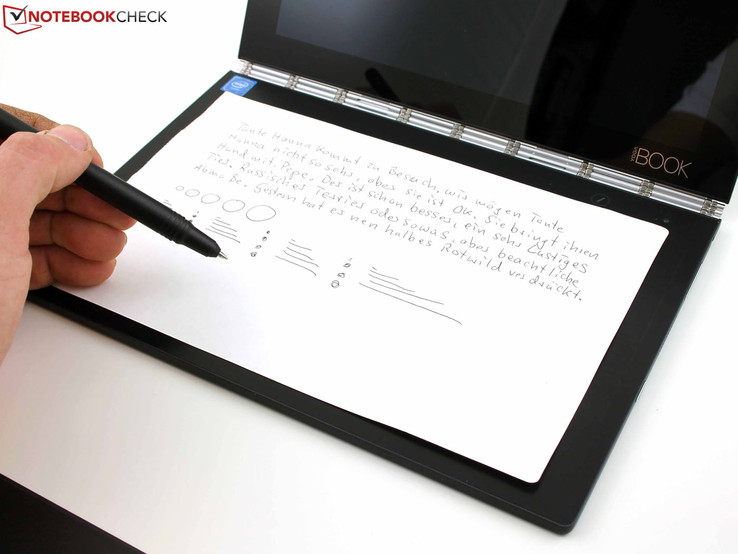 NOTEBOOKCHECK
intel
YOGA BOOK
Tante Hanna kommt zu Besuch, wir mögen Tante
Hanna nicht so sehr, aber sie ist OK. Sie bringt ihren
Hund mit, Pepe. Der ist schon besser, ein sehr lustiges
Tier. Russisches Terrier oder sowas, aber beachtliche
Gestern hat es nen halbes Rotwild verdrückt.